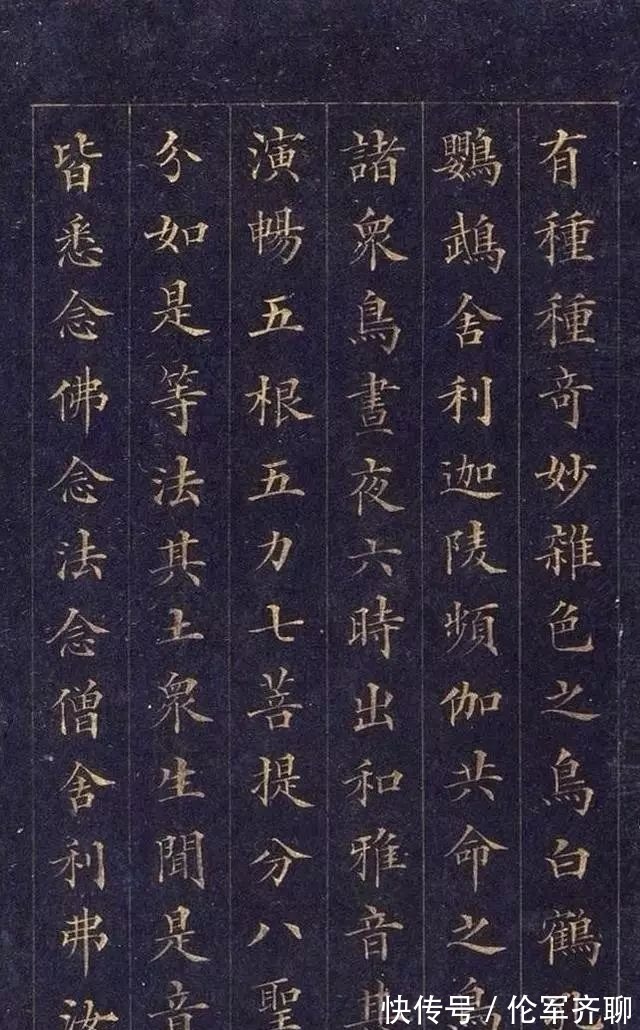 有種種奇妙雜色之鳥白鶴
鸚鵡舍利迦陵頻伽共命之鳥
諸衆鳥晝夜六時出和雅音其
演暢五根五力七菩提分八聖
分如是等法其土衆生聞是音
皆悉念佛念法念僧舍利弗汝
快传号/伦军齐聊